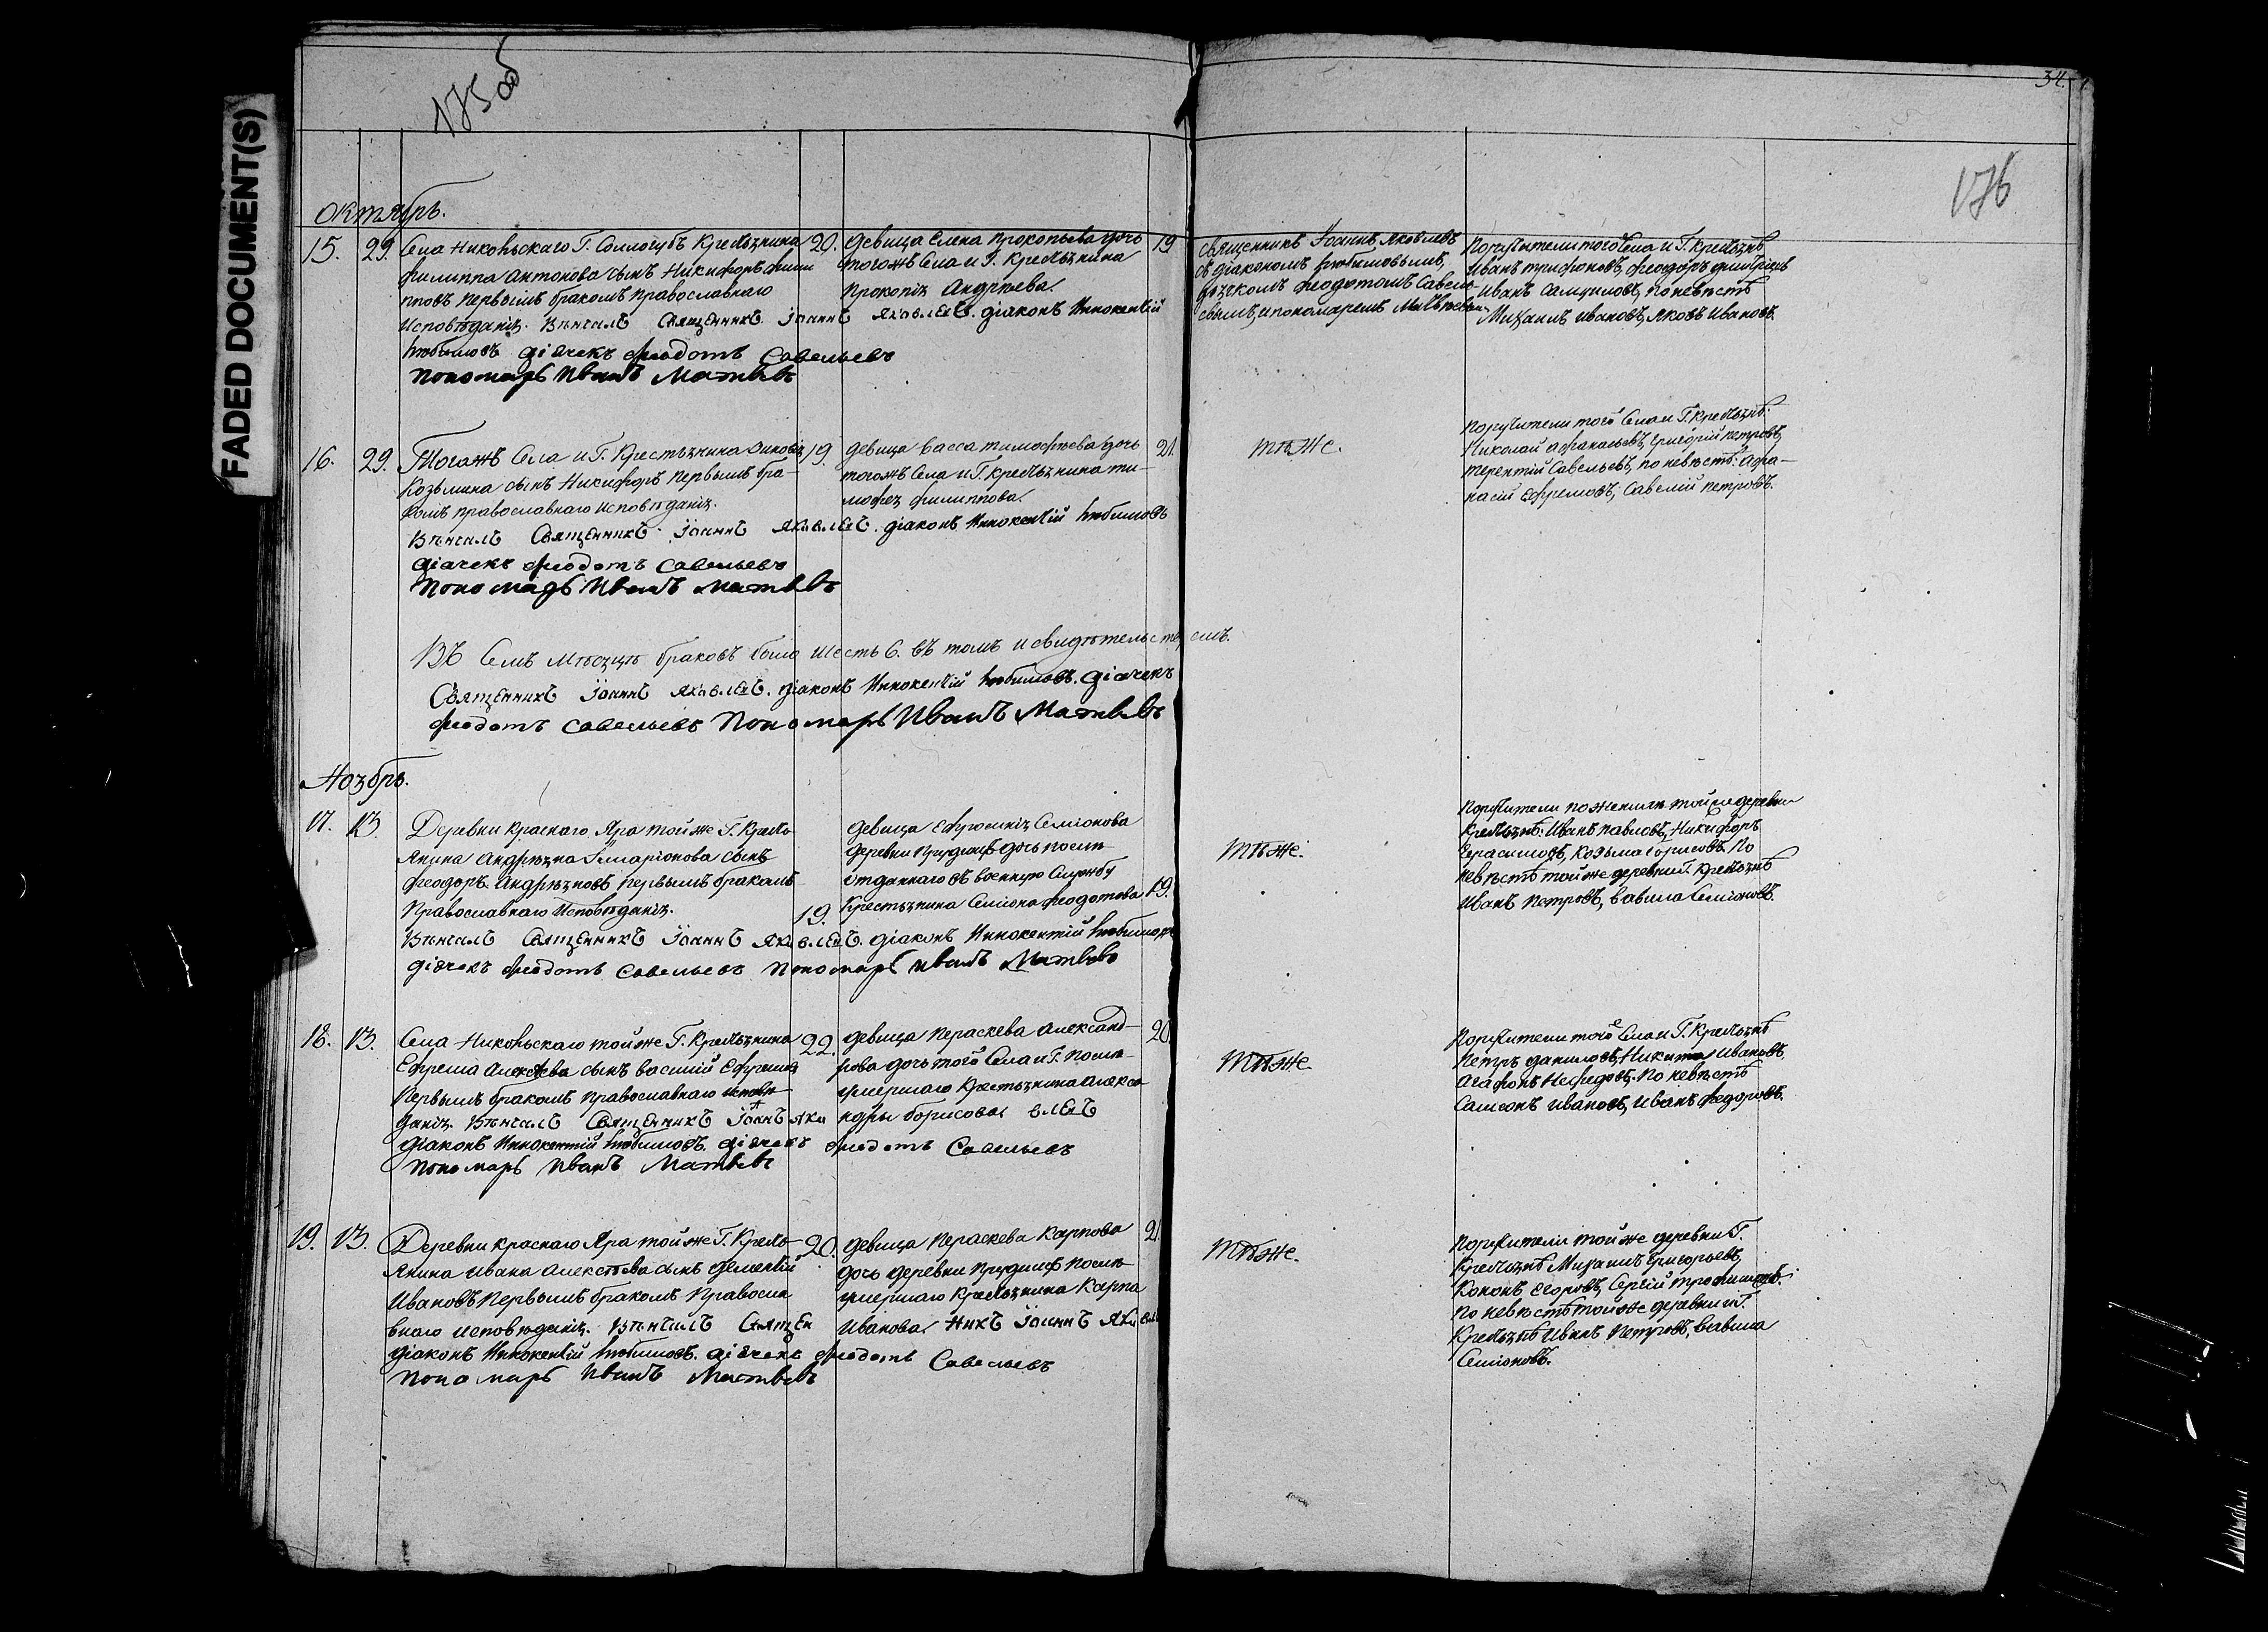 FADED DOCUMENT(S)
175 об
34.
176
Октябрь.
15. 29. Села Никольскаго Г. Сологубъ Крестьянина 20. девица Елена Прокопьева дочь 19
Филиппа Антонова сынъ Никифоръ Фили тогожъ Села и Г. Крестьянина
пповъ первымъ бракомъ православнаго Прокопія Андреева.
Исповѣданія. Вѣнчалъ Священникъ Іоаннъ Яковлевъ. діаконъ Иннокентій
Любимовъ дїячекъ Феодотъ Савельевъ
Пономарь Иванъ Матвѣвъ
Священникъ Іоаннъ Яковлевъ
съ діакономъ Любимовымъ,
дьячкомъ Феодотомъ Савель
евымъ, и пономаремъ Матвѣевымъ
Поручители того Села и Г. Крестьянъ
Иванъ Трифоновъ, Феодоръ Дмитріевъ
Иванъ Самуиловъ, по невѣстѣ
Михаилъ Ивановъ, Яковъ Ивановъ.
16. 29. Тогожъ Села и Г. Крестьянина Зиновія 19. девица Васса Тимофѣева дочь 21.
Козьмина сынъ Никифоръ первымъ бра- тогожъ Села и Г. Крестьянина Ти-
комъ православнаго Исповѣданія. мофея Филиппова.
Вѣнчалъ Священникъ Іоаннъ Яковлевъ. діаконъ Иннокентій Любимовъ
дїячекъ Феодотъ Савельевъ
Пономарь Иванъ Матвѣвъ
тѣже.
Поручители того Села и Г. Крестьянъ:
Николай Афанасьевъ, Григорій Петровъ,
Терентій Савельевъ, по невѣстѣ: Афа-
насій Ефремовъ, Савелій Петровъ.
Въ Семъ Мѣсяцѣ браковъ было шесть 6. въ томъ и свидѣтельствуемъ.
Священникъ Іоаннъ Яковлевъ. діаконъ Иннокентій Любимовъ. дїячекъ
Феодотъ Савельевъ Пономарь Иванъ Матвѣвъ
Ноябрь.
17. 13. Деревни Краснаго Яра тойже Г. Кресть девица Ефросинія Семіонова
янина Андрѣяна Іларіонова сынъ деревни дочь послѣ
Феодоръ Андрѣяновъ первымъ бракомъ отданнаго въ военную Службу
Православнаго Исповѣданія. 19. Крестьянина Семіона Феодотова 19.
Вѣнчалъ Священникъ Іоаннъ Яковлевъ. діаконъ Иннокентій Любимовъ
дїячекъ Феодотъ Савельевъ Пономарь Иванъ Матвѣвъ
Тѣже.
Поручители по женихѣ тойже деревни
Крестьянъ: Иванъ Павловъ, Никифоръ
Герасимовъ, Козьма Борисовъ. По
невѣстѣ тойже деревни Г. Крестьянъ
Иванъ Петровъ, Вавила Семіоновъ.
18. 13. Села Никольскаго тойже Г. Крестьянина 22. девица Пераскева Александ- 20
Ефрема Алексѣева сынъ Василій Ефремовъ рова дочь того Села и Г. послѣ
Первымъ бракомъ православнаго исповѣ- умершаго Крестьянина Алекса-
данія. Вѣнчалъ Священникъ Іоаннъ Яко ндры Борисова влевъ
діаконъ Иннокентій Любимовъ. дїячекъ Феодотъ Савельевъ
Пономарь Иванъ Матвѣвъ
Тѣже.
Поручители того Села и Г. Крестьянъ
Петръ Даниловъ, Никита Ивановъ,
Агафонъ Нефедовъ. По невѣстѣ
Самсонъ Ивановъ, Иванъ Федоровъ.
19. 13. Деревни Краснаго Яра тойже Г. Кресть- 20. девица Пераскева Карпова 21.
янина Ивана Алексѣева сынъ Дементій дочь деревни послѣ
Ивановъ Первымъ бракомъ Правосла умершаго Крестьянина Карпа
внаго исповѣданія. Вѣнчалъ Священ Иванова. никъ Іоаннъ Яковлевъ
діаконъ Иннокентій Любимовъ. дїячекъ Феодотъ Савельевъ
Пономарь Иванъ Матвѣвъ
Тѣже.
Поручители тойже деревни Г.
Крестьянъ Михаилъ Григорьевъ,
Кононъ Егоровъ, Сергій Трофимовъ.
По невѣстѣ тойже деревни и Г.
Крестьянъ Иванъ Петровъ, Вавила
Семіоновъ.